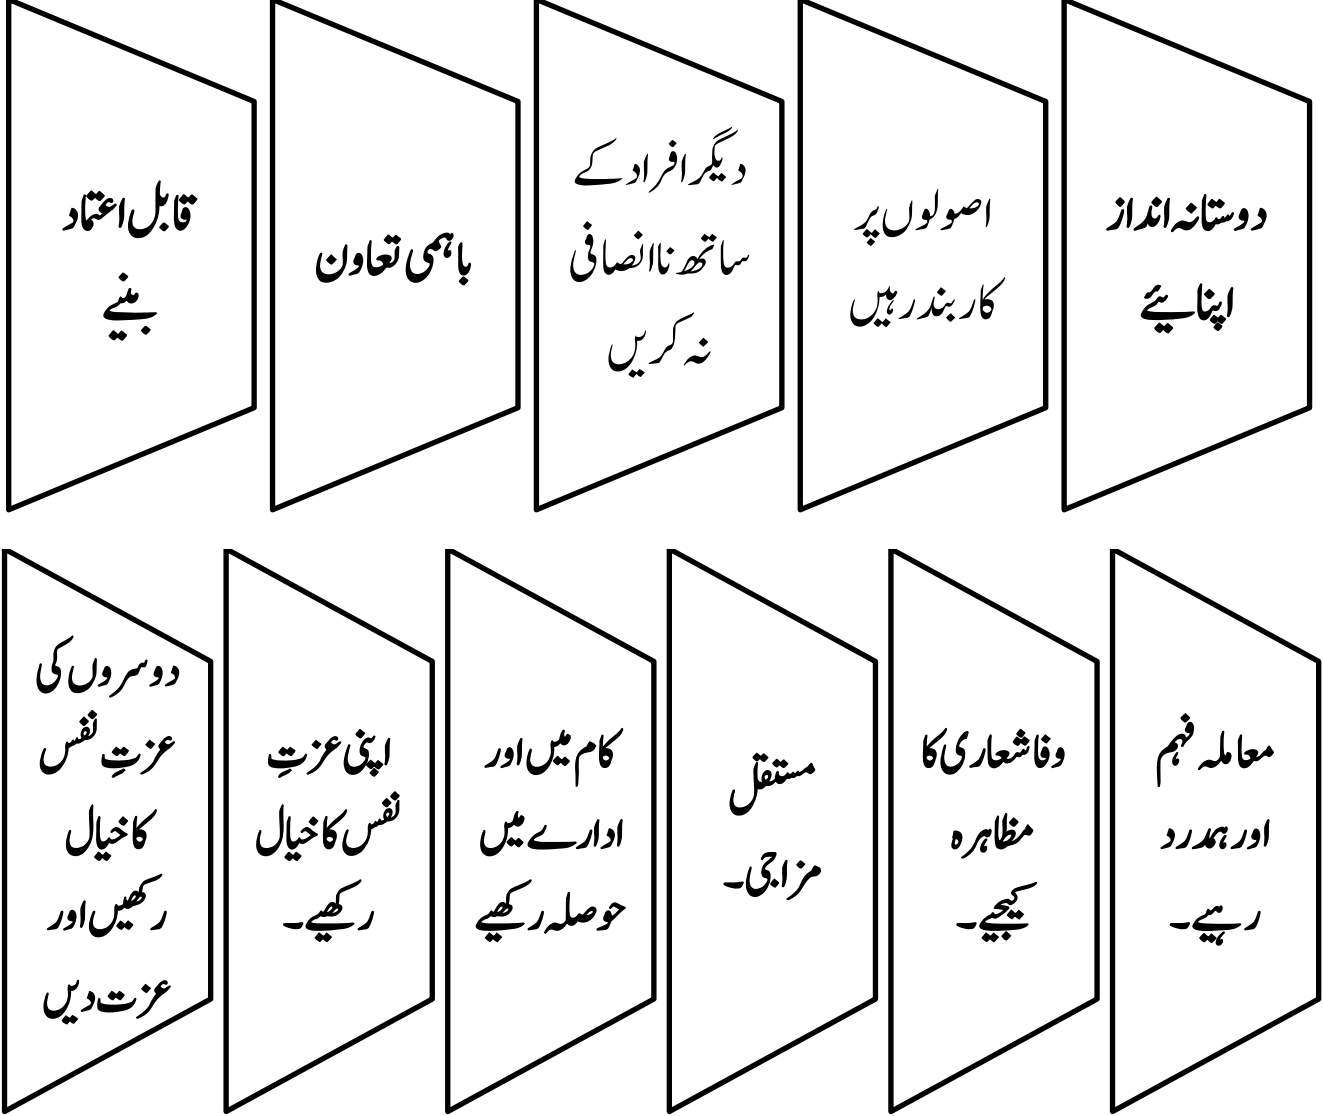 دوستانہ انداز
اپنایئے
اصولوں پر
کاربند رہیں
دیگر افراد کے
ساتھ ناانصافی
نہ کریں
باہمی تعاون
قابل اعتماد
بنیے
معاملہ فہم
اور ہمدرد
رہیے۔
وفا شعاری کا
مظاہرہ
کیجیے۔
مستقل
مزاجی۔
کام میں اور
ادارے میں
حوصلہ رکھیے
اپنی عزتِ
نفس کا خیال
رکھیے۔
دوسروں کی
عزتِ نفس
کا خیال
رکھیں اور
عزت دیں